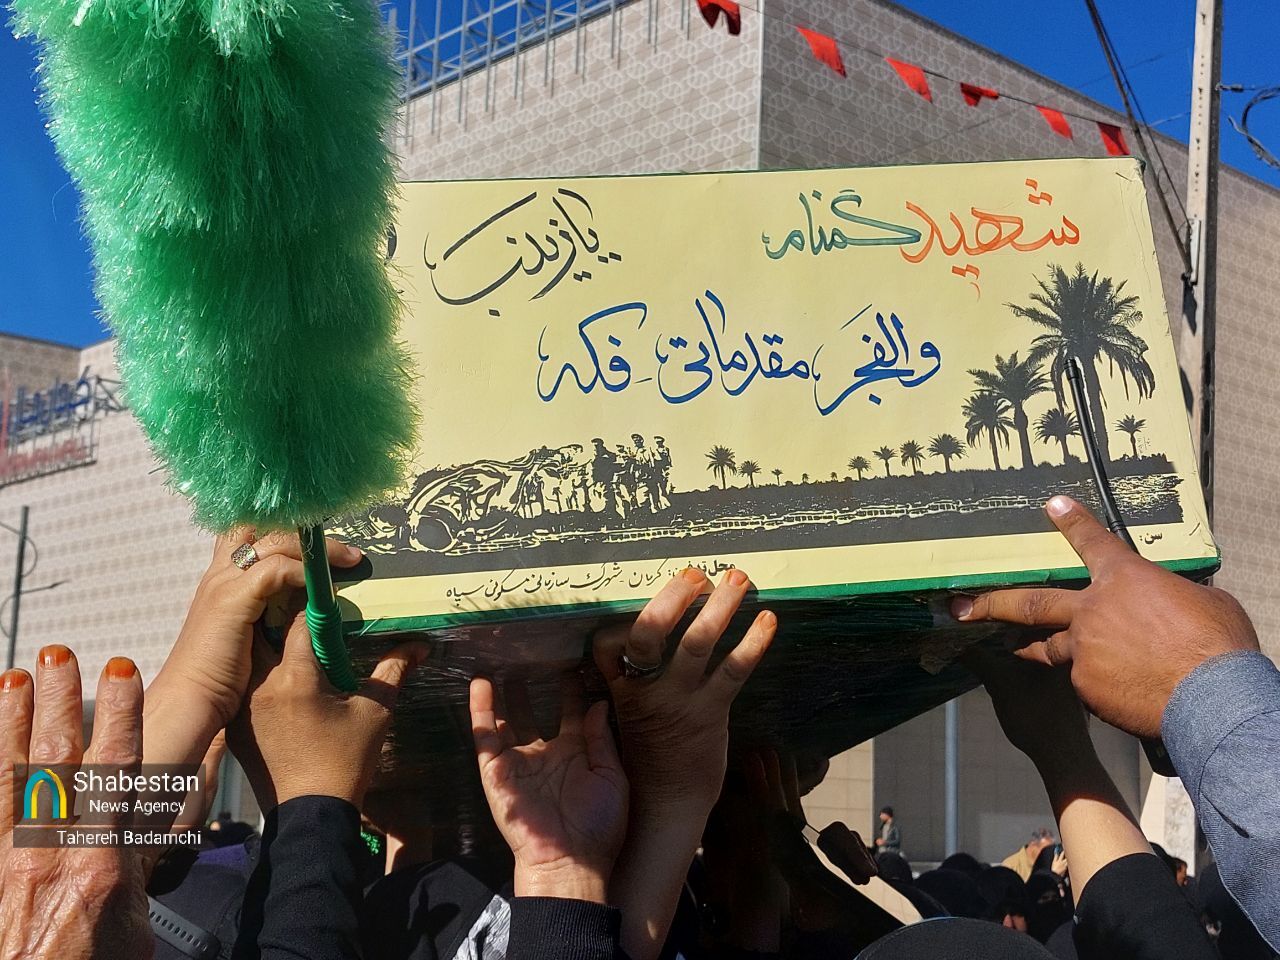 شهید گمنام
یا زینب
والفجر مقدماتی فکه
سن:
محل تدفین: کرمان - شهرک سازمانی مسکونی سپاه
Shabestan
News Agency
Tahereh Badamchi